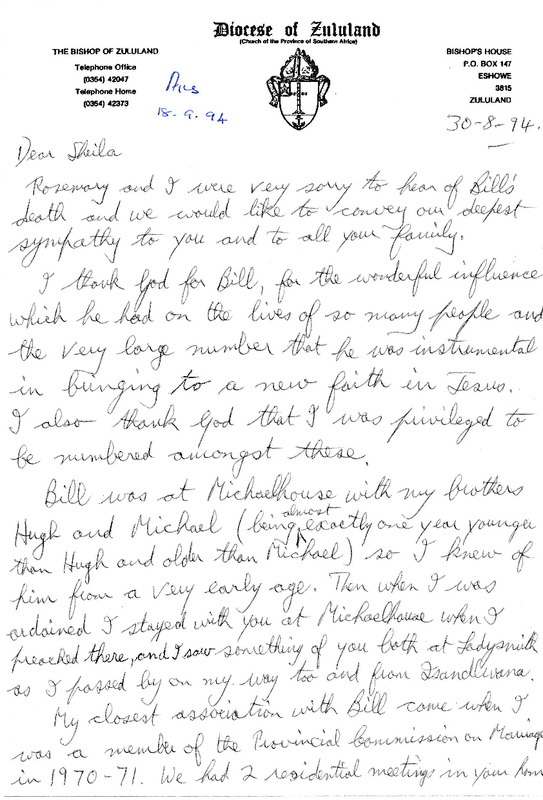 Diocese of Zululand
(Church of the Province of Southern Africa)
THE BISHOP OF ZULULAND
Telephone Office
(0354) 42047
Telephone Home
(0354) 42373
18-9-94
BISHOP'S HOUSE
P.O. BOX 147
ESHOWE
3815
ZULULAND
30-8-94.
Dear Sheila
Rosemary and I were very sorry to hear of Bill's
death and we would like to convey our deepest
sympathy to you and to all your family.
I thank God for Bill, for the wonderful influence
which he had on the lives of so many people and
the very large number that he was instrumental
in bringing to a new faith in Jesus.
I also thank God that I was privileged to
be numbered amongst these.
Bill was at Michaelhouse with my brothers
Hugh and Michael (being almost exactly one year younger
than Hugh and older than Michael) so I knew of
him from a very early age. Then when I was
ordained I stayed with you at Michaelhouse when I
preached there, and I saw something of you both at Ladysmith
as I passed by on my way too and from Isandlwana.
My closest association with Bill came when I
was a member of the Provincial Commission on Marriage
in 1970-71. We had 2 residential meetings in your